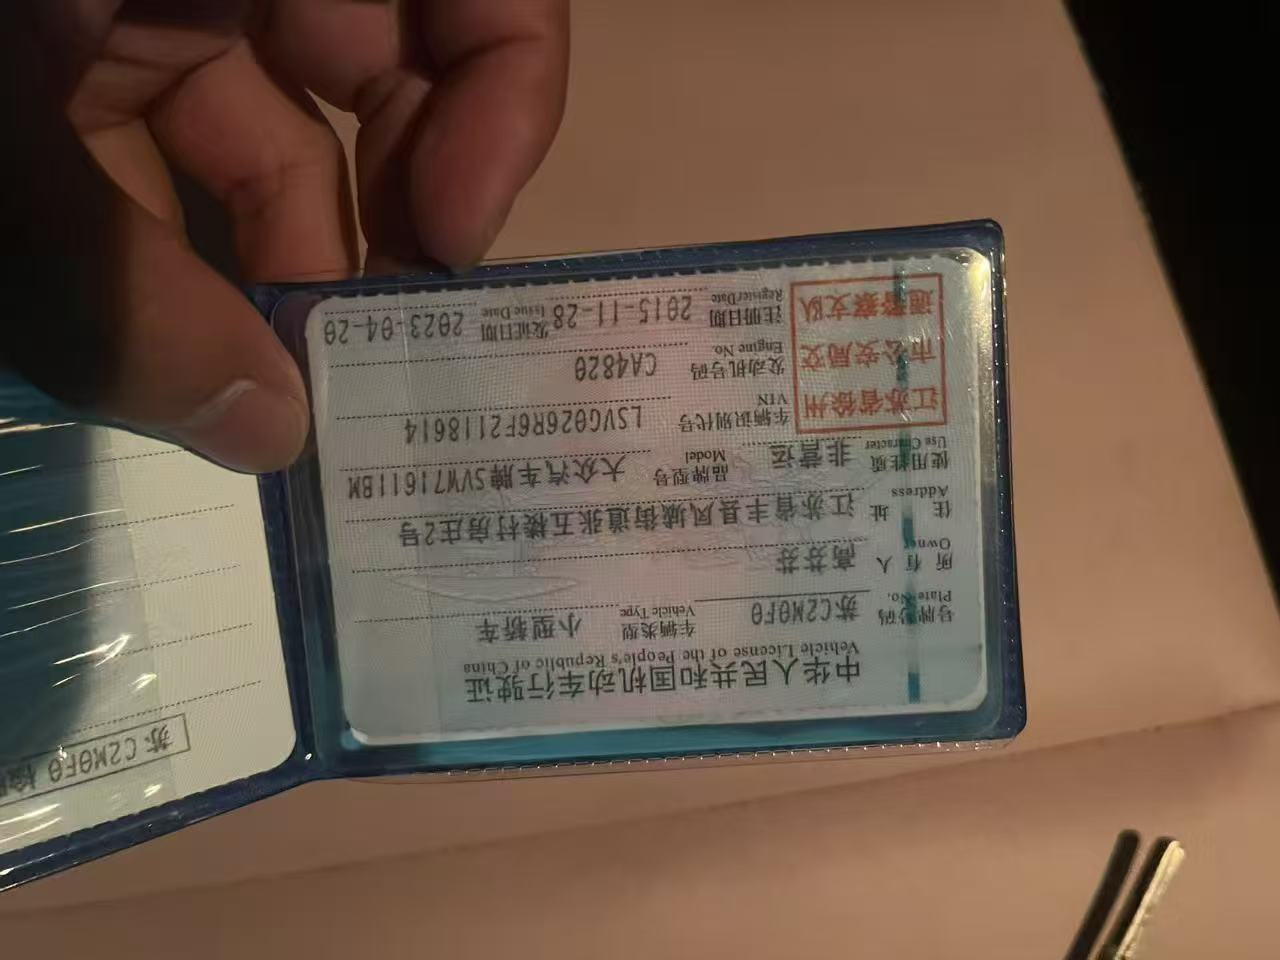 中华人民共和国机动车行驶证
Vehicle License of the People's Republic of China
号牌号码 苏C2M0F0 车辆类型 小型轿车
Plate No. Vehicle Type
所有人 高芬芬
Owner
住址 江苏省丰县凤城街道张五楼村房庄2号
Address
使用性质 非营运 品牌型号 大众汽车牌SVW71611BM
Use Character Model
江苏省徐州
市公安局交
通警察支队
车辆识别代号 LSVG026R6F2118614
VIN
发动机号码 CA4820
Engine No.
注册日期 2015-11-28 发证日期 2023-04-20
Register Date Issue Date
苏C2M0F0